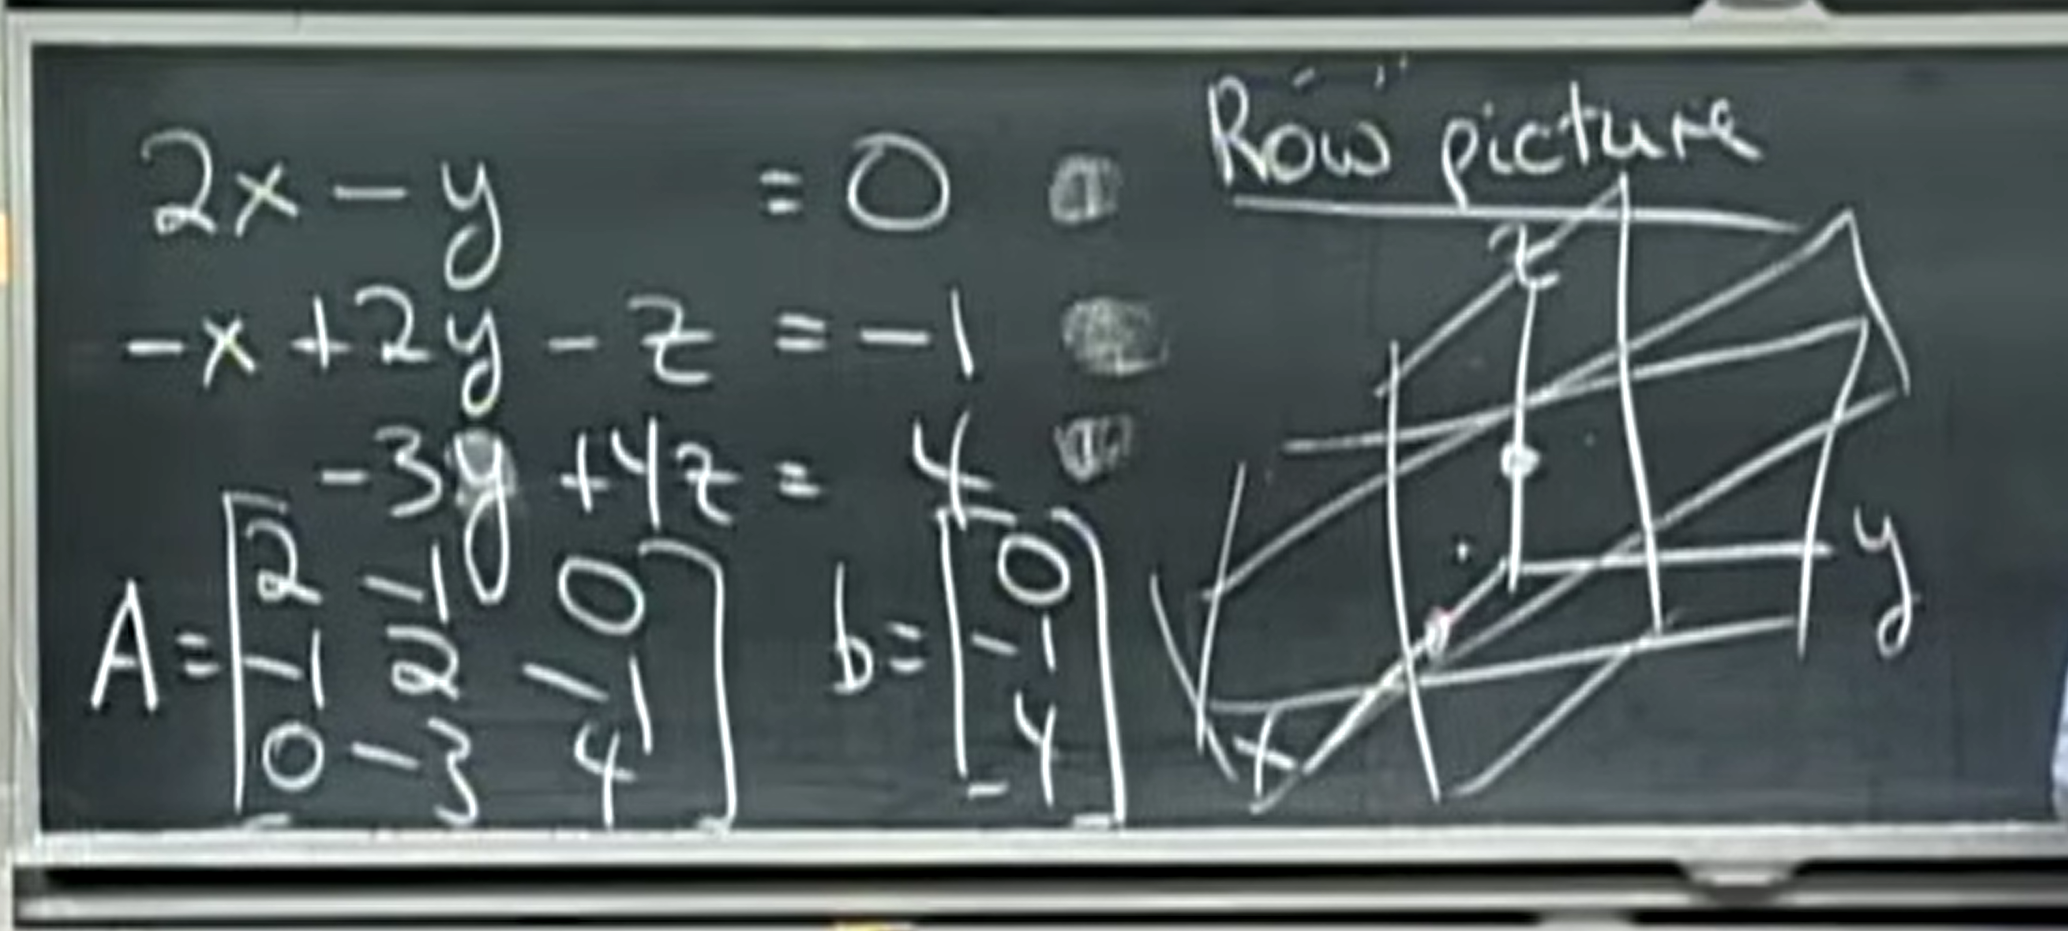 2x - y = 0
-x + 2y - z = -1
-3y + 4z = 4
A = [2 -1 0
-1 2 -1
0 -3 4]
b = [0
-1
4]
Row picture
z
y
x